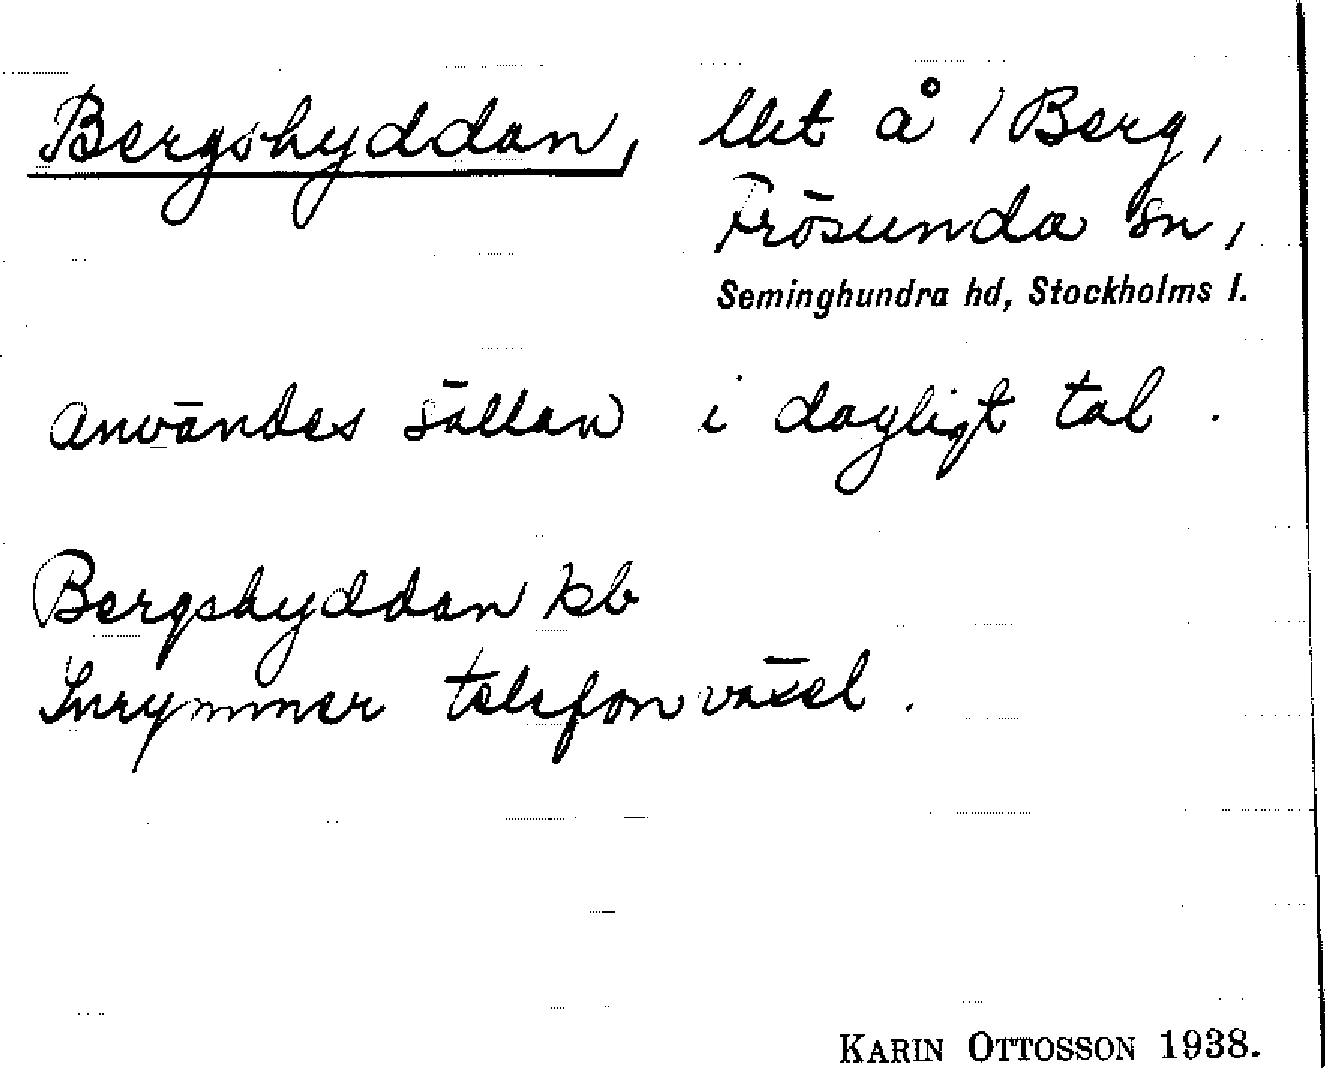 Bergshyddan, lht å 1 Berg,
Frösunda sn,
Seminghundra hd, Stockholms l.
användes sällan i dagligt tal.
Bergshyddan kb
Inrymmer telefonväxel.
KARIN OTTOSSON 1938.